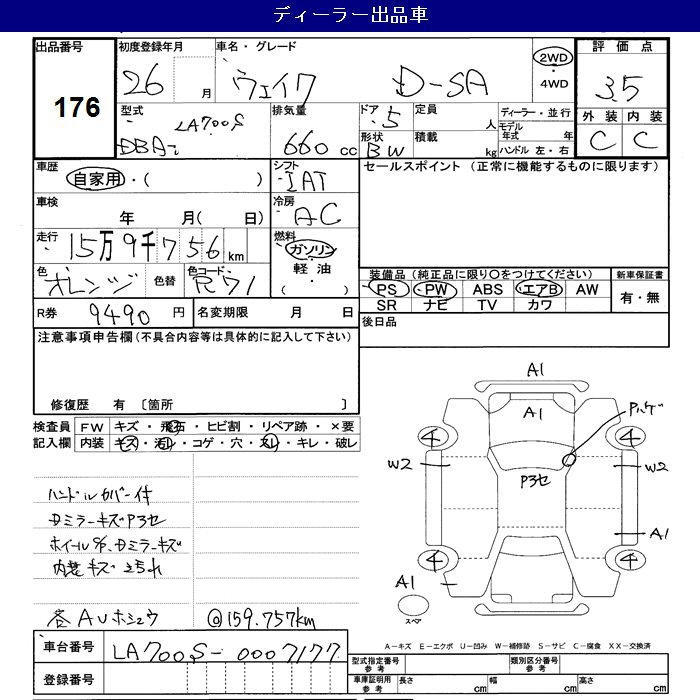 ディーラー出品車
出品番号 初度登録年月 車名・グレード 2WD ・ 4WD 評価点
176 26 月 ウェイク D-SA 3.5
型式 排気量 ドア 5 定員 人 ディーラー・並行 外装 内装
DBA- LA700S 660 cc 形状 BW 積載 kg モデル年式 年 ハンドル 左・右 C C
車歴 自家用・( ) シフト IAT セールスポイント (正常に機能するものに限ります)
車検 年 月( 日) 冷房 AC
走行 15万9千756 km 燃料 ガソリン 軽油 ( ・ )
色 オレンジ 色替 色コード R71 装備品 (純正品に限り○をつけてください) 新車保証書
PS PW ABS エアB AW 有・無
SR ナビ TV カワ
R券 9490 円 名変期限 月 日 後日品
注意事項申告欄 (不具合内容等は具体的に記入して下さい)
修復歴 有 〔箇所 〕
検査員 FW キズ・飛石・ヒビ割・リペア跡・×要
記入欄 内装 キズ・汚れ・コゲ・穴・スレ・キレ・破レ
A1
A1
Pハゲ
4 4
W2 W2
P3セ
A1
4 4
A1
スペア
ハンドルカバー付
Dミラーキズ P3セ
ホイールC/P、Dミラーキズ
内装キズ
@159.757km
車台番号 LA700S-0007177
登録番号
A-キズ E-エクボ U-凹み W-補修跡 S-サビ C-腐食 XX-交換済
型式指定番号 参考 類別区分番号 参考
車庫証明用 参考 長さ cm 幅 cm 高さ cm